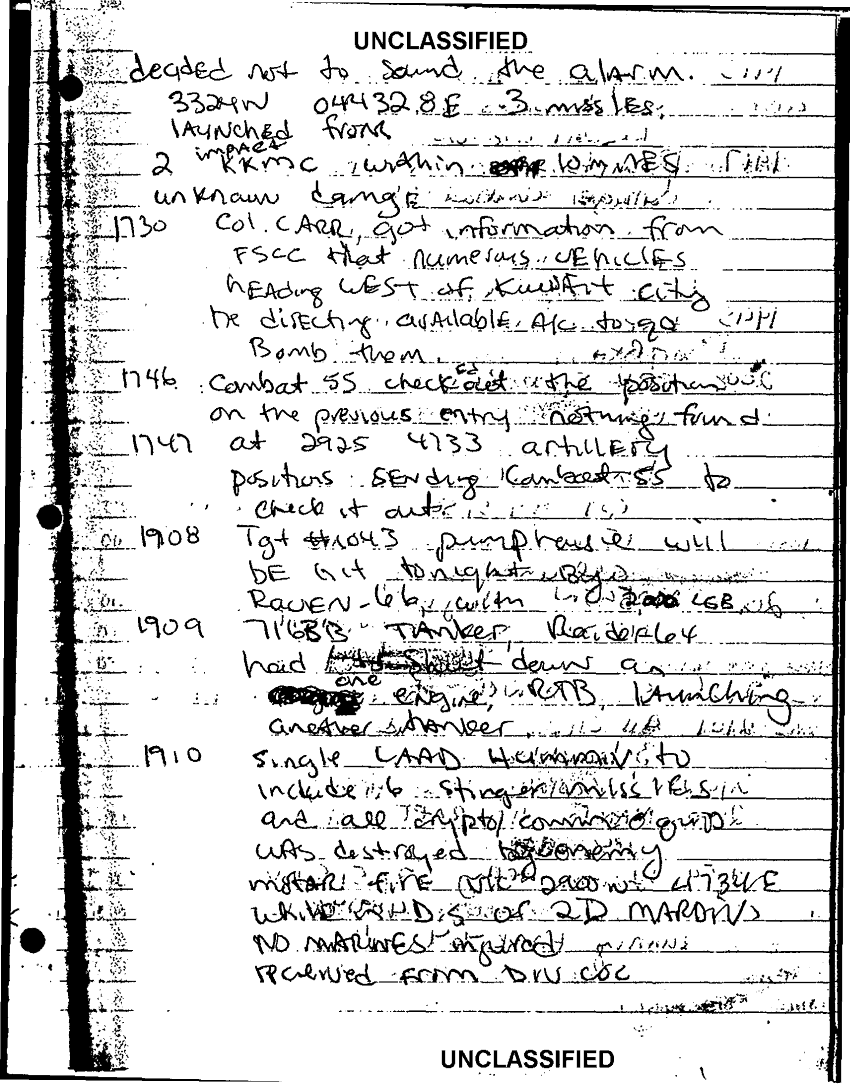 UNCLASSIFIED
decided not to sound the alarm.
3324N 04432.8E 3 missles,
LAUNCHED from
impact
2 KKMC within 10 MILES
unknown damge
1730 Col. CARR, got information from
FSCC that numerous vEhiclEs
hEAding WEST of Kuwait city
he directing avAilable A/c to go
Bomb them.
1746 Combat 55 check out the position
on the previous entry nothing found
1747 at 2925 4733 artillERy
positions SENding Combat 55 to
check it out
1908 Tgt #1043 pumphouse will
bE hit tonight by
RAVEN-66, with LGB
1909 716BB TANKer, Raider 64
had down as
one
engine, RTB, lAunching
another tanker
1910 single LAAD to
include 6 stinger missiles
and all crypto/comm equip
wAs destroyed by enemy
fIRE 2900N 4734E
of 2D MARDIV
NO MARINES injured
received from DIV COC
UNCLASSIFIED